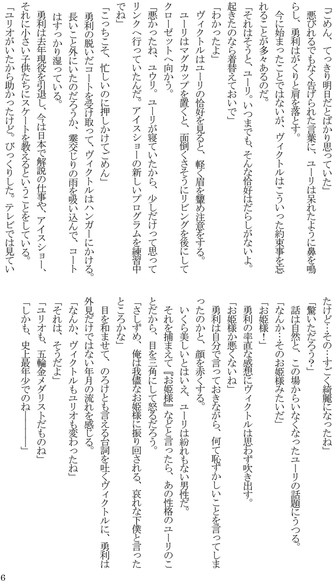 「ごめん、てっきり明日だとばかり思っていた」
悪びれるでもなく告げられた言葉に、ユーリは呆れたように鼻を鳴
らし、勇利はがくりと肩を落とす。
今に始まったことではないが、ヴィクトルはこういった約束事を忘
れることが多々あるのだ。
「それはそうと、ユーリ。いつまでも、そんな恰好はだらしがないよ。
起きたのなら着替えておいで」
「わかったよ」
ヴィクトルはユーリの恰好を見ると、軽く眉を顰め注意をする。
ユーリはマグカップを置くと、面倒くさそうにリビングを後にして
クローゼットへ向かう。
「悪かったね、ユウリ。ユーリが寝ていたから、少しだけって思って
リンクへ行っていたんだ。アイスショーの新しいプログラムを練習中
でね」
「こっちこそ、忙しいのに押しかけてごめん」
勇利の脱いだコートを受け取って、ヴィクトルはハンガーにかける。
長いこと外にいたのだろうか。霙交じりの雨を吸い込んで、コート
はすっかり湿っている。
勇利は去年現役を引退し、今は日本で解説の仕事や、アイスショー、
それに小さい子供たちにスケートを教えるということをしている。
「ユリオがいたから助かったけど。びっくりした。テレビでは見てい
たけど…その…すごく綺麗になったね」
「驚いただろう？」
話は自然と、この場からいなくなったユーリの話題にうつる。
「なんか…そのお姫様みたいだ」
「お姫様！」
勇利の率直な感想にヴィクトルは思わず吹き出す。
「お姫様か悪くないね」
勇利は自分で言っておきながら、何て恥ずかしいことを言ってしま
ったのかと、顔を赤くする。
いくら美しいとはいえ、ユーリは紛れもない男性だ。
それを捕まえて『お姫様』などと言ったら、あの性格のユーリのこ
とだから、目を三角にして怒るだろう。
「さしずめ、俺は我儘なお姫様に振り回される、哀れな下僕と言った
ところかな」
目を和ませて、のろけとも言える台詞を吐くヴィクトルに、勇利は
外見だけではない年月の流れを感じる。
「なんか、ヴィクトルもユリオも変わったね」
「それは、そうだよ」
「ユリオも、五輪金メダリストだものね」
「しかも、史上最年少でのね―――」
6